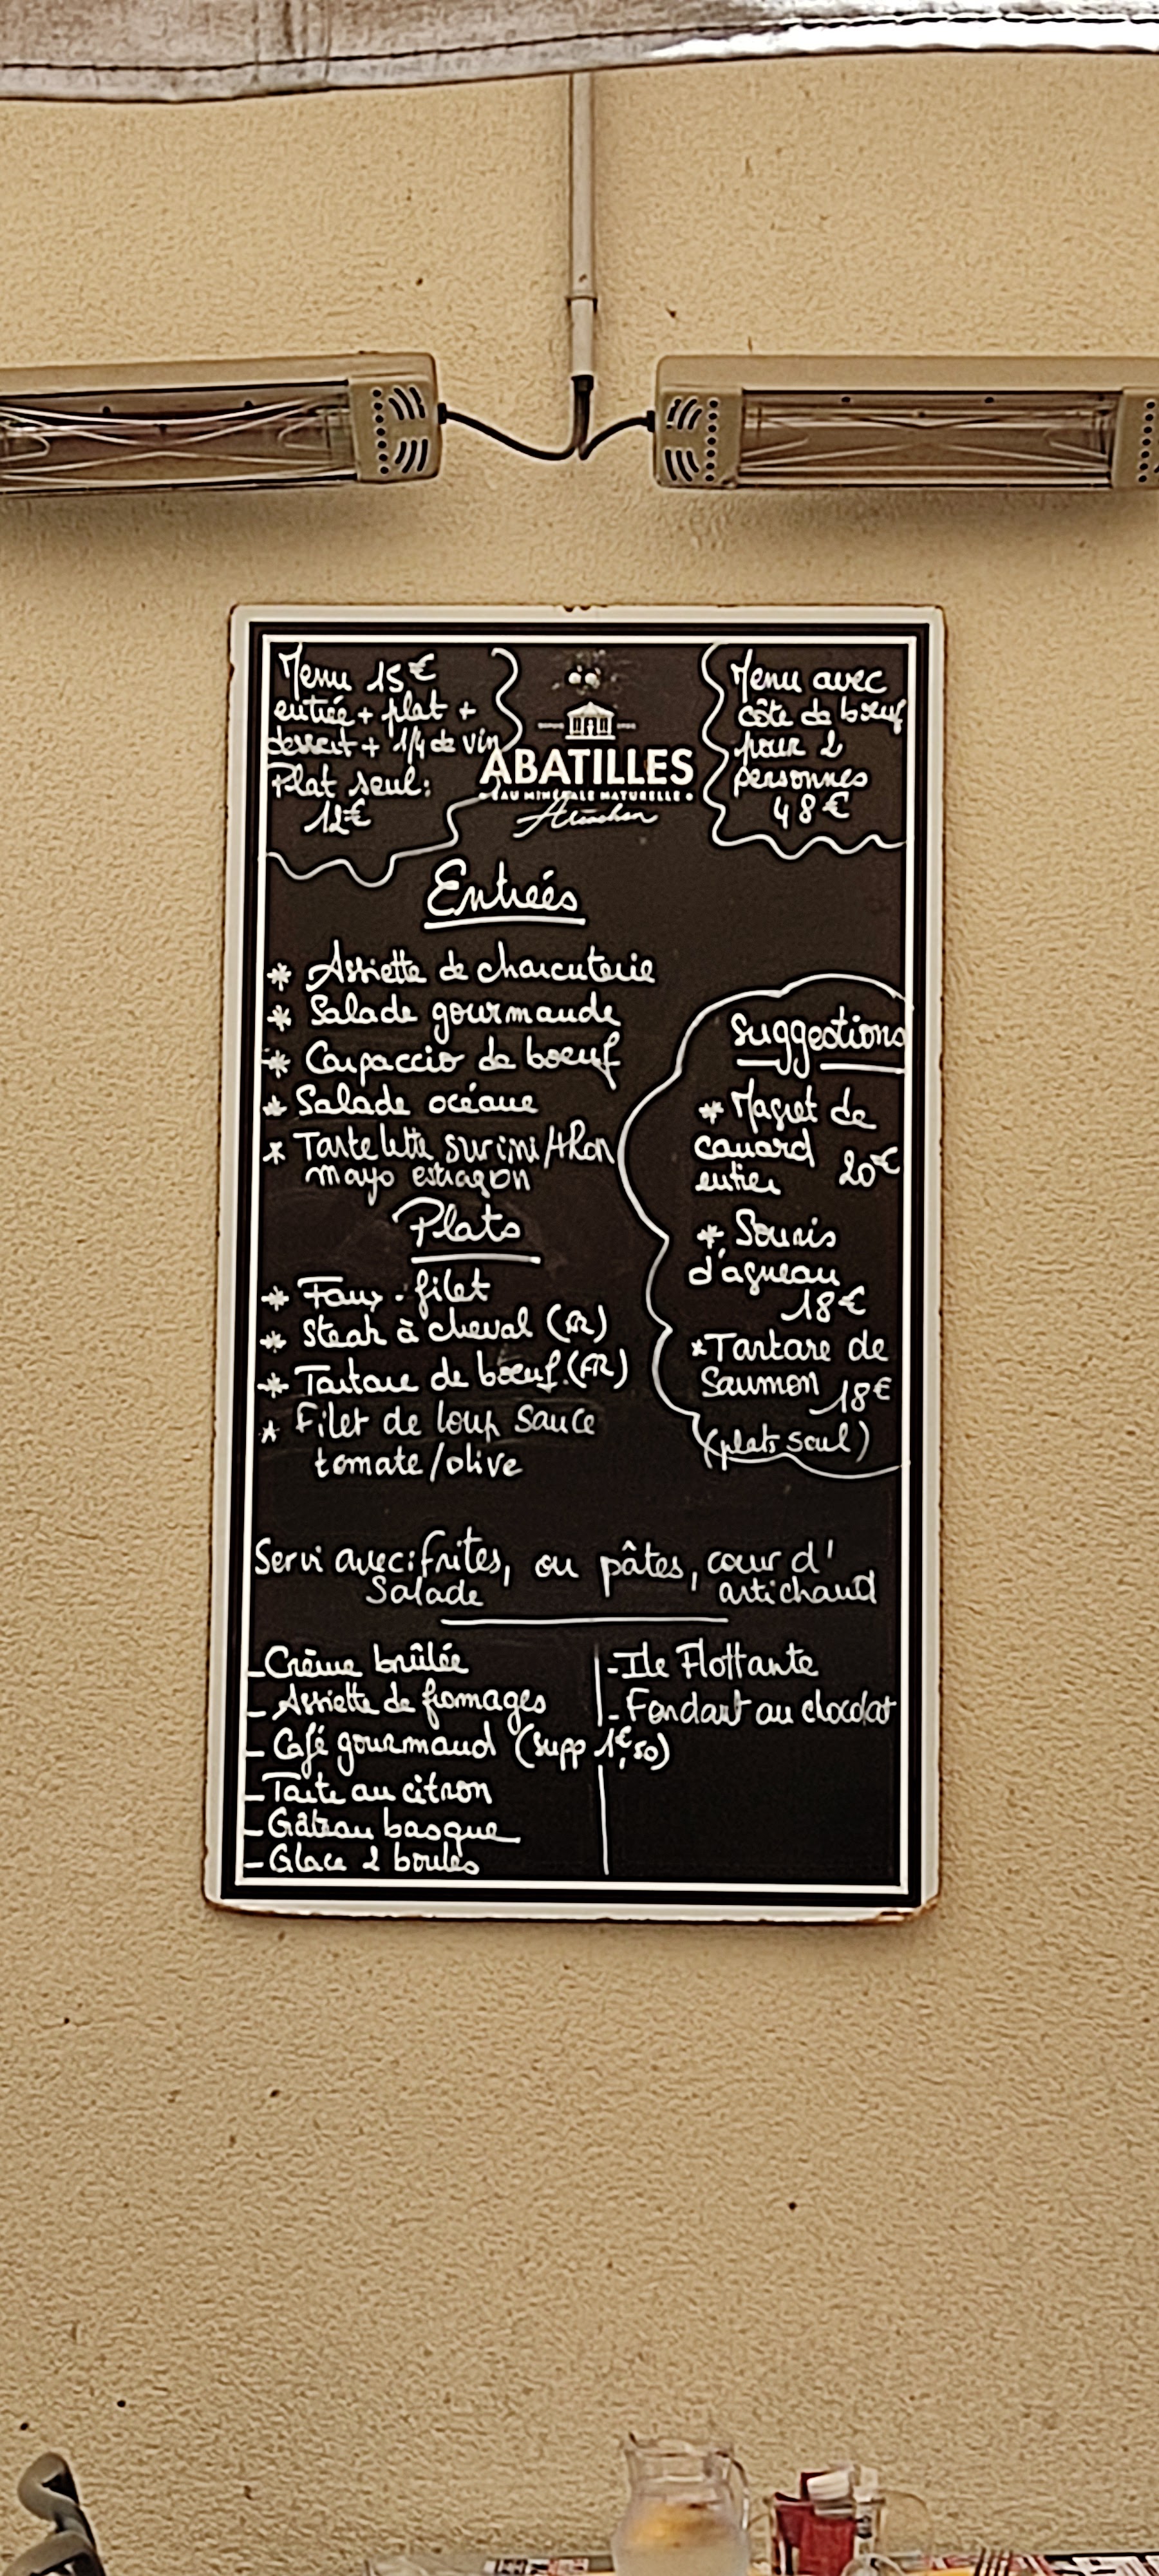 Menu 15€
entrée + plat +
dessert + 1/4 de vin
Plat seul:
12€
ABATILLES
EAU MINÉRALE NATURELLE
Arcachon
Menu avec
côte de boeuf
pour 2
personnes
48€
Entrées
* Assiette de charcuterie
* Salade gourmande
* Carpaccio de boeuf
* Salade océane
* Tartelette surimi/thon
mayo estragon
Plats
* Faux-filet
* Steak à cheval (FR)
* Tartare de boeuf (FR)
* Filet de loup sauce
tomate/olive
Suggestions
* Magret de
canard
entier 20€
* Souris
d'agneau
18€
* Tartare de
Saumon 18€
(plats seul)
Servi avec: frites, ou pâtes, coeur d'
Salade artichaud
- Crème brûlée
- Assiette de fromages
- Café gourmand (supp 1€,50)
- Tarte au citron
- Gâteau basque
- Glace 2 boules
- Ile Flottante
- Fondant au chocolat